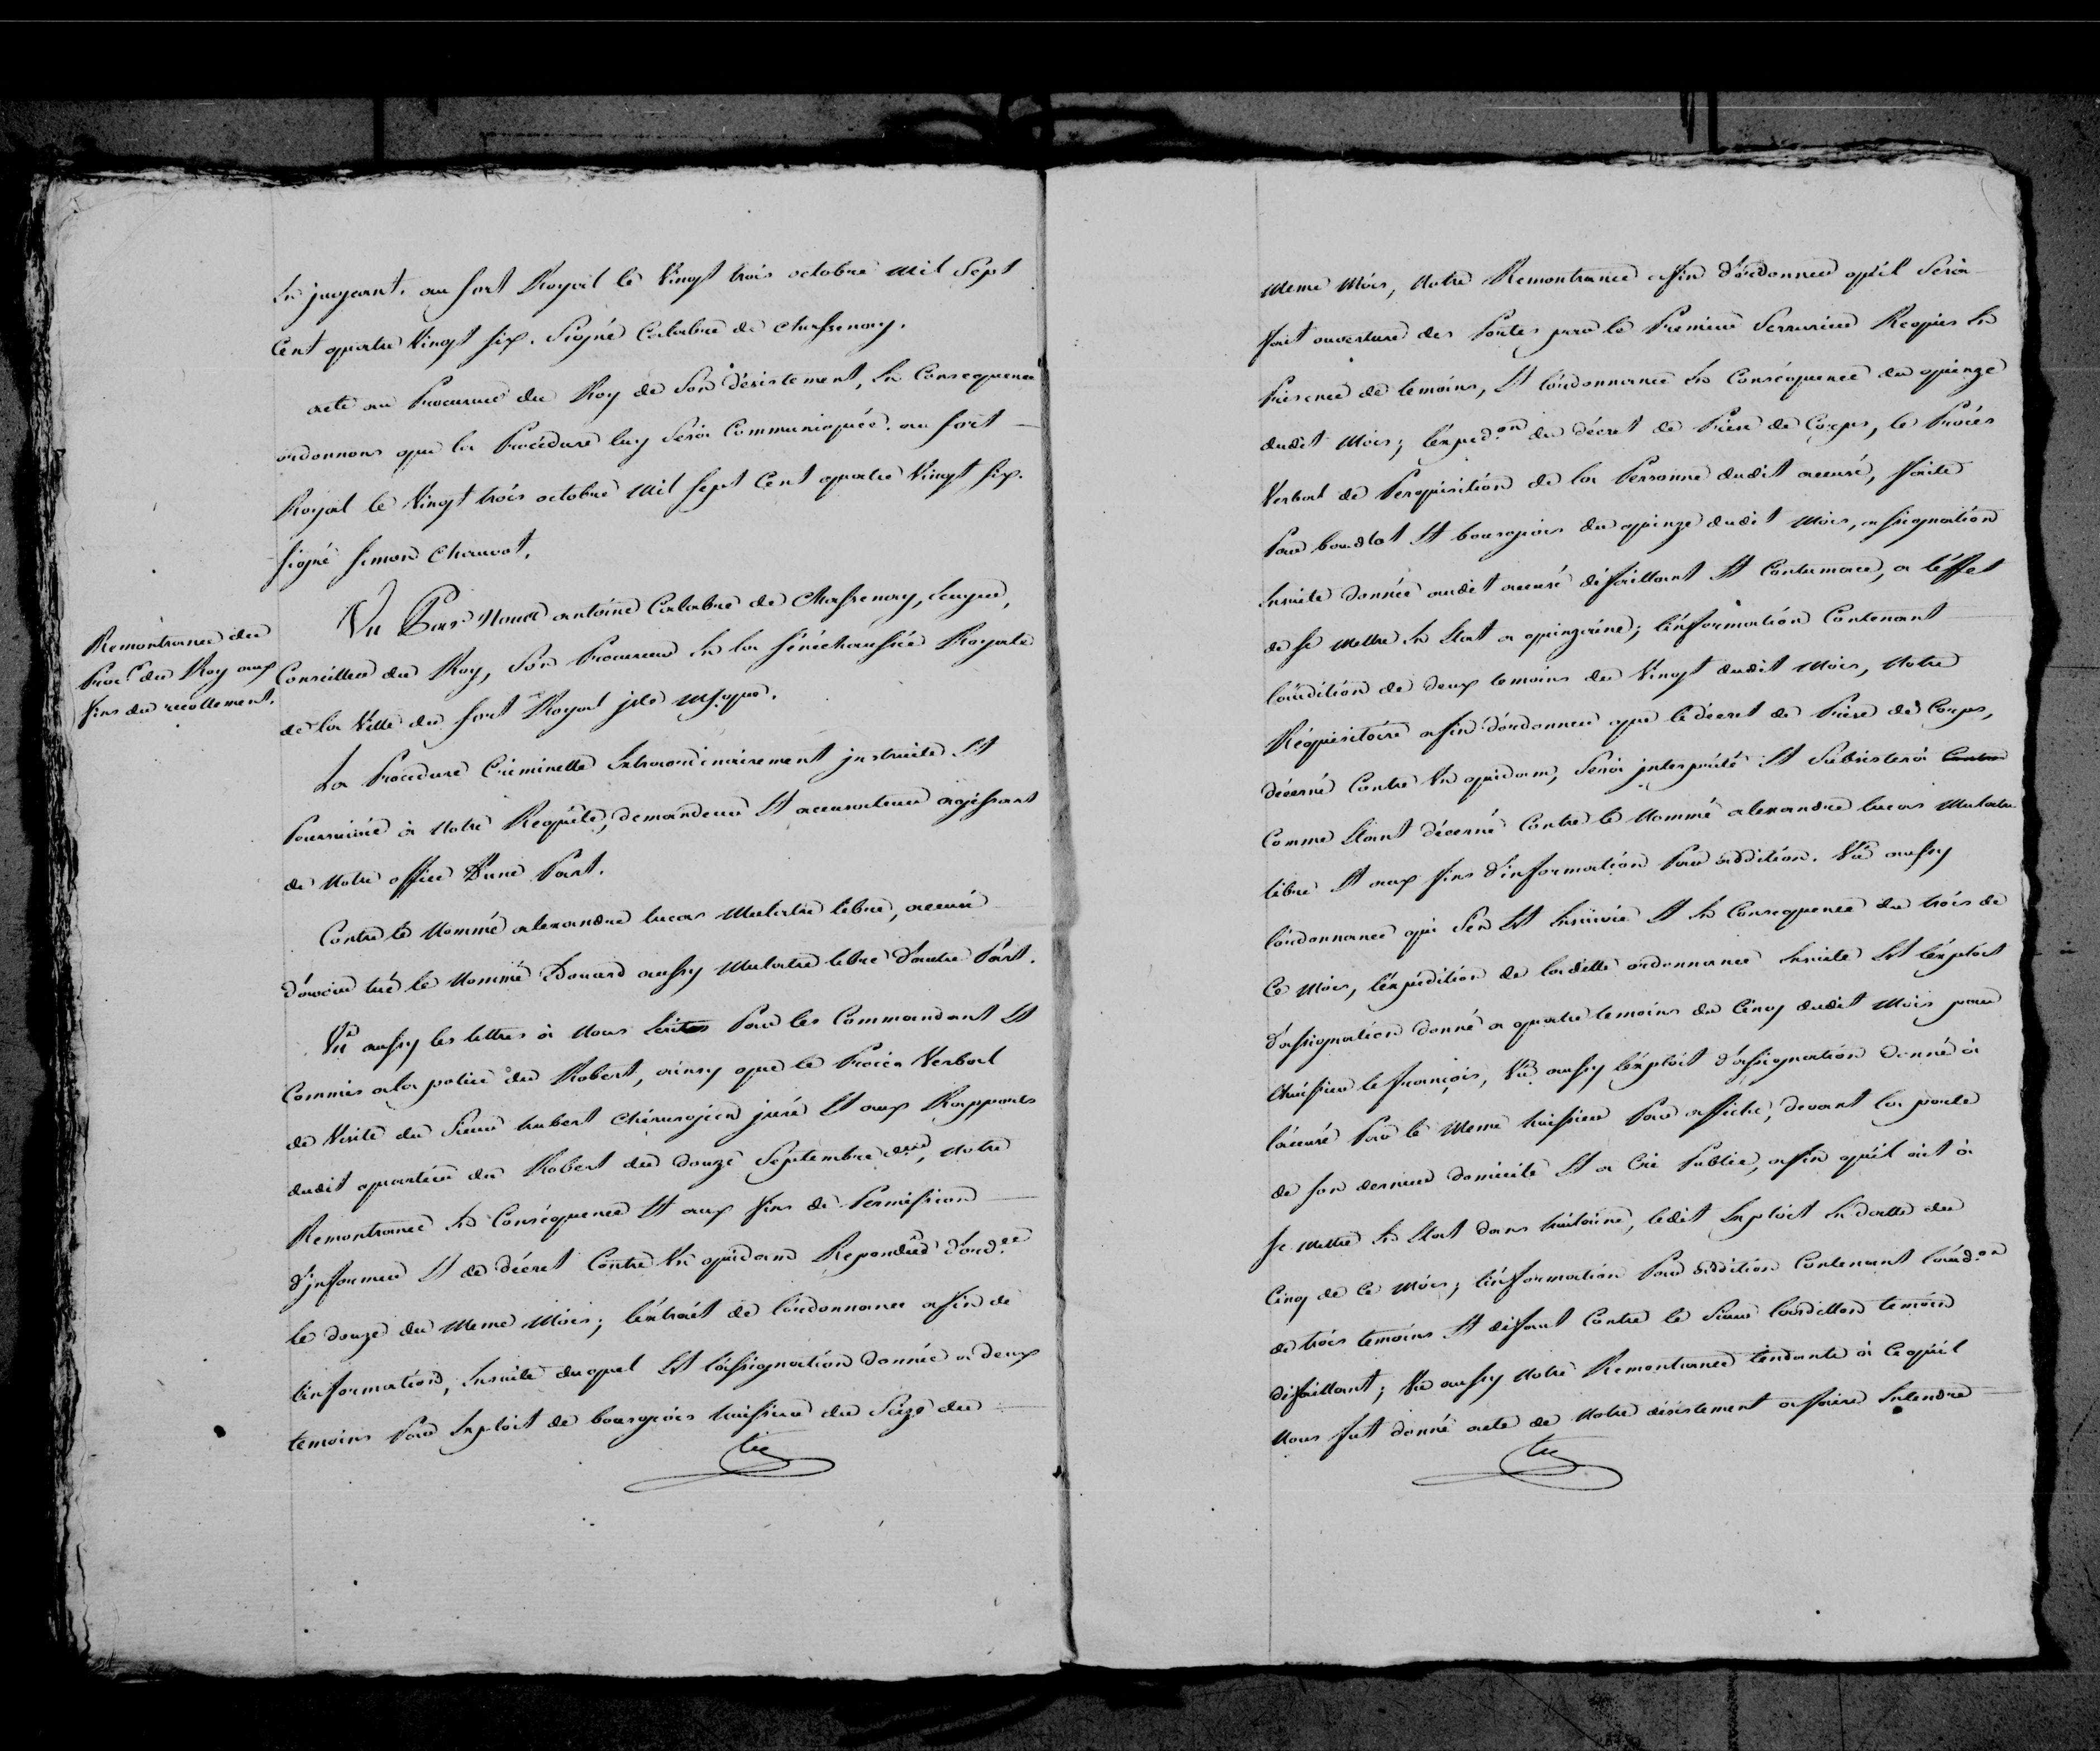 En jugeant. au fort Royal le Vingt trois octobre Mil Sept
Cent quatre Vingt six. Signé Calabre de Chassenay.
acte au Procureur du Roy de Son désistement, En Consequence
ordonnons que la Procédure luy Sera Communiquée. au fort
Royal le Vingt trois octobre Mil sept Cent quatre Vingt six.
signé Simon Chauvot.
Remontrance du
Proc.r du Roy aux
fins du recollement.
Vu Par Nous antoine Calabre de Chassenay, Ecuyer,
Conseiller du Roy, Son Procureur En la sénéchaussée Royale
de la Ville du fort Royal jsle M/que.
La Procédure Criminelle Extraordinairement jnstruite Et
Poursuivie à Notre Requête, demandeur Et accusateur agissant
de Notre office D'une Part.
Contre le Nommé alexandre lucas Mulatre libre, accusé
d'avoir tué le Nommé Edouard aussy Mulatre libre d'autre Part.
Vu aussy les lettres à Nous Ecrites Par les Commandant Et
Commis a la police du Robert, ainsy que le Procès Verbal
de Visite du Sieur hubert Chirurgien juré Et aux Rapports
dudit quartier du Robert du douze Septembre d.er, Notre
Remontrance En Conséquence Et aux fins de Permission
d'jnformer Et de décret Contre Un quidam Repondue d'ord.ce
le douze du Meme Mois; l'extrait de l'ordonnance afin de
l'information, Ensuite duquel Est l'assignation donnée a deux
temoins Par Exploit de bourgeois huissier du Seize du
Meme Mois, Notre Remontrance afin d'ordonner qu'il Sera
fait ouverture des Portes par le Premier Serrurier Requis En
Présence de temoins, Et l'ordonnance En Conséquence du quinze
dudit Mois; l'exped.on du décret de Prise de Corps, le Procès
Verbal de Perquisition de la Personne dudit accusé, faite
Par boudet Et bourgeois du quinze dudit Mois, assignation
Ensuite donnée audit accusé défaillant Et Contumace, a l'effet
de se Mettre En Etat a quinzaine; l'information Contenant
l'audition de deux temoins du Vingt dudit Mois, Notre
Réquisitoire afin d'ordonner que le décret de Prise de Corps,
décerné Contre Un quidam, Sera jnterprété Et Subsistera Contre
Comme Etant décerné Contre le Nommé alexandre lucas Mulatre
libre Et aux fins d'information Par addition. Vu aussy
l'ordonnance qui S'en Est Ensuivie Et En Consequence du trois de
Ce Mois, l'expédition de ladite ordonnance Ensuite Est l'exploit
d'assignation donné a quatre temoins du Cinq dudit Mois par
Huissier le françois, Vu aussy l'exploit d'assignation donné à
l'accusé Par le Meme huissier Par affiche, devant la porte
de son dernier domicile Et a Cri Public, afin qu'il ait à
se Mettre En Etat dans huitaine, ledit Exploit En datte du
Cinq de Ce Mois; l'information Par addition Contenant l'aud.on
de trois temoins Et défaut Contre le Sieur temoin
défaillant; Vu aussy Notre Remontrance tendante à Cequ'il
Nous fut donné acte de Notre désistement a faire Entendre